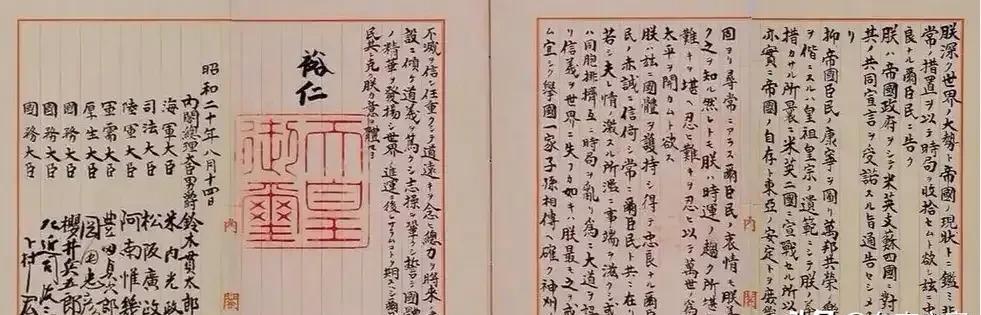 朕深ク世界ノ大勢ト帝國ノ現狀トニ鑑ミ非
常ノ措置ヲ以テ時局ヲ收拾セムト欲シ茲ニ忠
良ナル爾臣民ニ告ク
朕ハ帝國政府ヲシテ米英支蘇四國ニ對
其ノ共同宣言ヲ受諾スル旨通告セシメ
リ
抑帝國臣民ノ康寧ヲ圖リ萬邦共榮ノ樂
ヲ偕ニスルハ皇祖皇宗ノ遺範ニシテ朕ノ
措カサル所曩ニ米英二國ニ宣戰セル所以
亦實ニ帝國ノ自存ト東亞ノ安定トヲ庶
内
閣
固ヨリ尋常ニアラス爾臣民ノ衷情モ朕善
ク之ヲ知ル然レトモ朕ハ時運ノ趨ク所堪
難キヲ堪ヘ忍ヒ難キヲ忍ヒ以テ萬世ノ爲
太平ヲ開カムト欲ス
朕ハ茲ニ國體ヲ護持シ得テ忠良ナル爾
民ノ赤誠ニ信倚シ常ニ爾臣民ト共ニ在リ
若シ夫レ情ノ激スル所濫ニ事端ヲ滋クシ
ハ同胞排擠互ニ時局ヲ亂リ爲ニ大道ヲ誤
リ信義ヲ世界ニ失フカ如キハ朕最モ之ヲ
ム宜シク擧國一家子孫相傳ヘ確ク神州
不滅ヲ信シ任重クシテ道遠キヲ念ヒ總力ヲ將來
設ニ傾ケ道義ヲ篤クシ志操ヲ鞏クシ誓テ國體
ノ精華ヲ發揚シ世界ノ進運ニ後レサラムコトヲ期スヘシ爾
民其レ克ク朕カ意ヲ體セヨ
裕仁
天皇
御璽
内
閣
昭和二十年八月十四日
内閣總理大臣男爵 鈴木貫太郎
海軍大臣 米内光政
司法大臣 松阪廣政
陸軍大臣 阿南惟幾
軍需大臣 豐田貞次郎
厚生大臣 岡田忠彦
國務大臣 櫻井兵五郎
國務大臣
國務大臣 下村宏